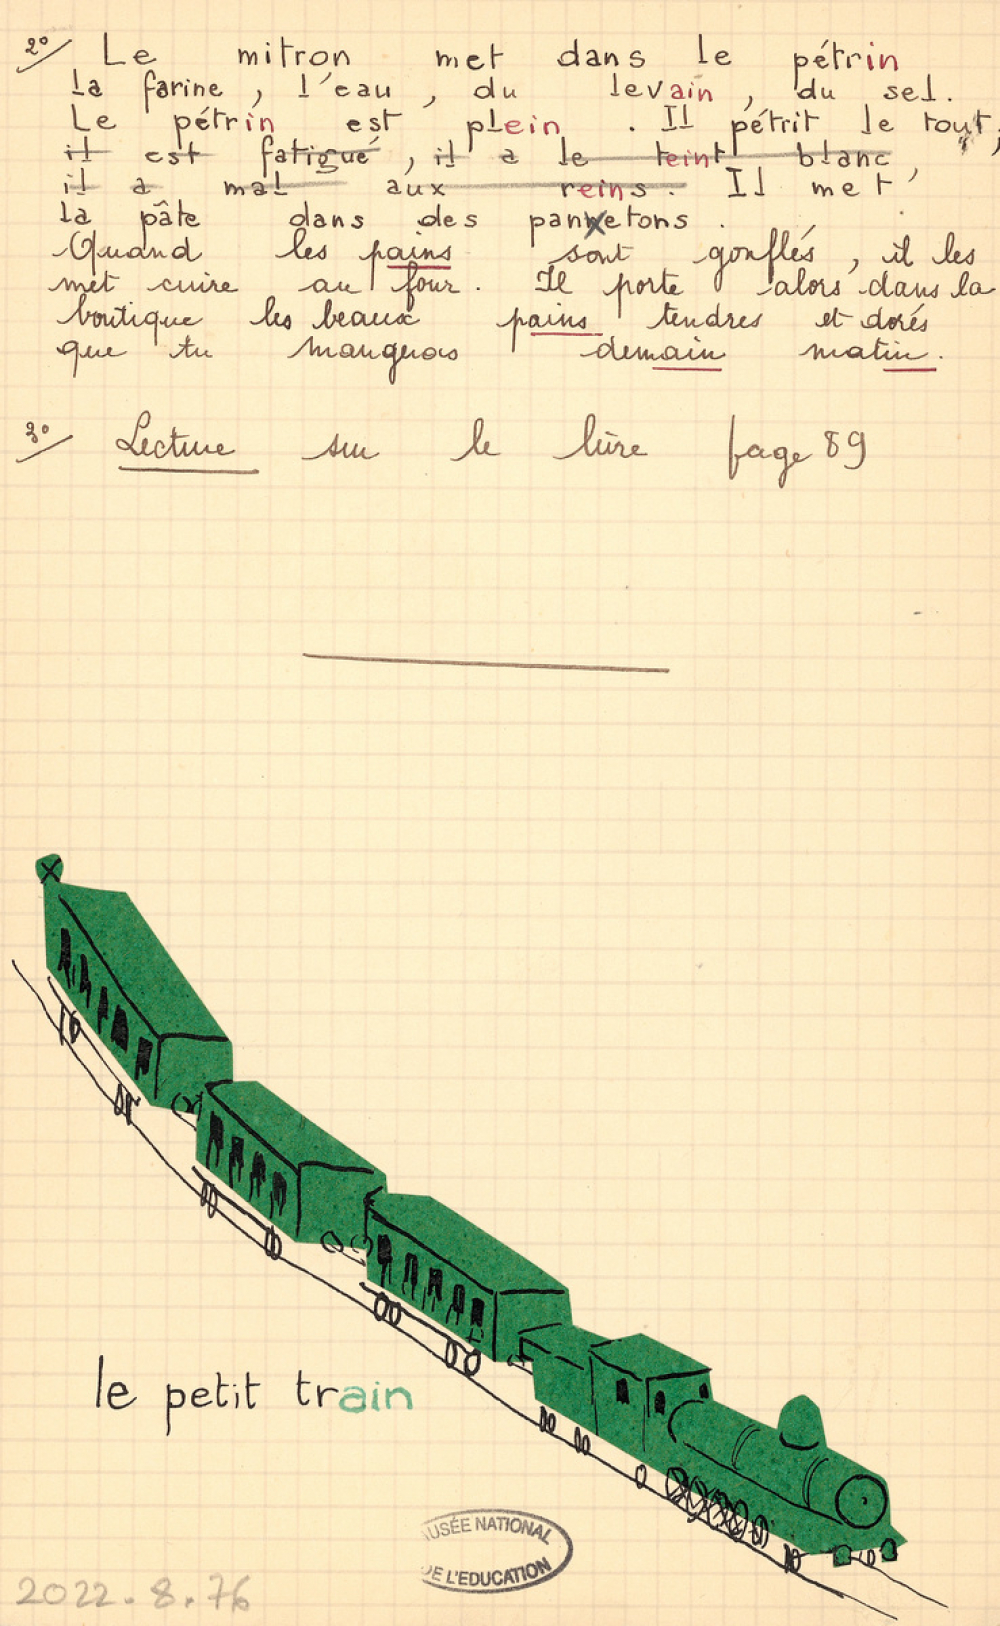 2° Le mitron met dans le pétrin
la farine, l'eau, du levain, du sel.
Le pétrin est plein. Il pétrit le tout;
il est fatigué, il a le teint blanc,
il a mal aux reins. Il met
la pâte dans des pannetons.
Quand les pains sont gonflés, il les
met cuire au four. Il porte alors dans la
boutique les beaux pains tendres et dorés
que tu mangeras demain matin.
3° Lecture sur le livre page 89
le petit train
MUSÉE NATIONAL
DE L'EDUCATION
2022.8.76